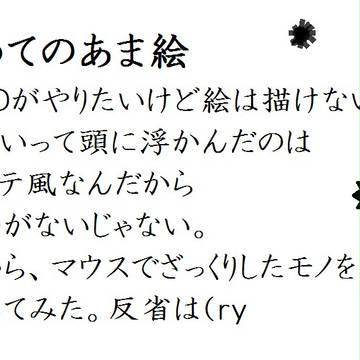 てのあま絵
がやりたいけど絵は描けない
いって頭に浮かんだのは
テ風なんだから
がないじゃない。
ら、マウスでざっくりしたモノを
てみた。反省は(ry